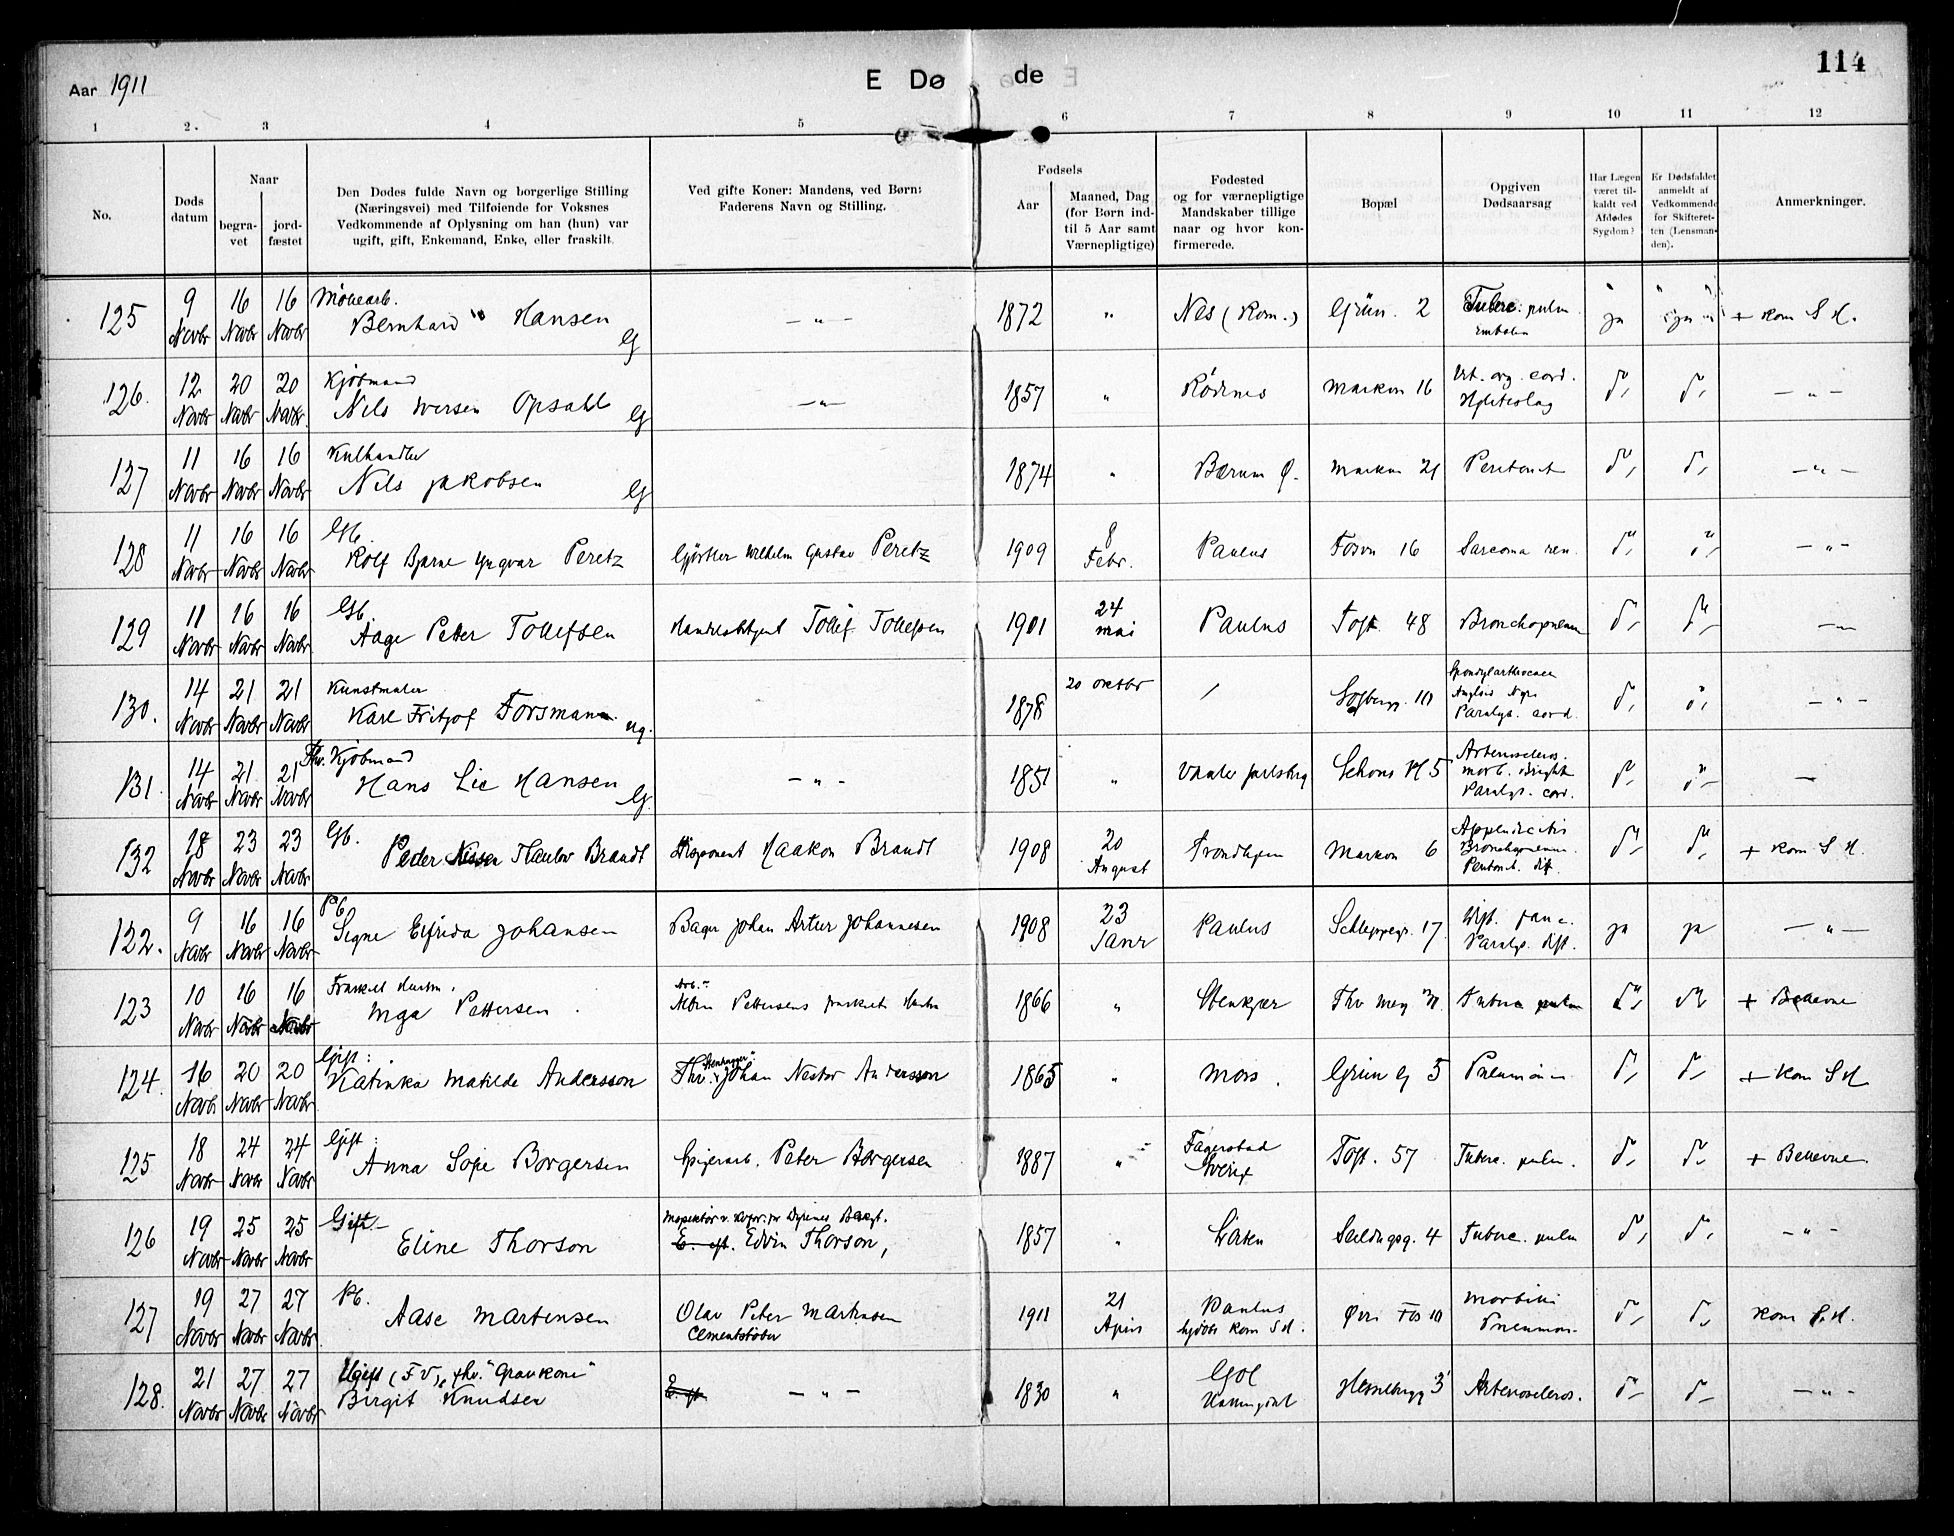 Aar 1911
E Døde
114
1 2. 3 4 5 6 7 8 9 10 11 12
No.
Døds datum
Naar
begravet
jordfæstet
Den Dødes fulde Navn og borgerlige Stilling
(Næringsvei) med Tilføiende for Voksnes
Vedkommende af Oplysning om han (hun) var
ugift, gift, Enkemand, Enke, eller fraskilt.
Ved gifte Koner: Mandens, ved Børn:
Faderens Navn og Stilling.
Fødsels
Aar
Maaned, Dag
(for Børn ind-
til 5 Aar samt
Værnepligtige)
Fødested
og for værnepligtige
Mandskaber tillige
naar og hvor kon-
firmerede.
Bopæl
Opgiven
Dødsaarsag
Har Lægen
været til-
kaldt ved
Afdødes
Sygdom?
Er Dødsfaldet
anmeldt af
Vedkommende
for Skifteret-
ten (Lensman-
den).
Anmerkninger.
125 9 Novbr 16 Novbr 16 Novbr
Bernhard Hansen G — " — 1872 " Nes (Rom.) Grün. 2 Tuberc. pulm ja ja + Kom S H.
126. 12 Novbr 20 Novbr 20 Novbr Kjøbmand
Nils Iversen Opsahl G — " — 1857 " Rødnes Markvn 16 Vit. org. cord. — " —
127 11 Novbr 16 Novbr 16 Novbr Kulhandler
Nils Jakobsen G 1874 " Bærum Markvn 21 Peritonit — " —
128 11 Novbr 16 Novbr 16 Novbr Gb.
Rolf Bjarne Yngvar Peretz Gjørtler Wilhelm Gustav Peretz 1909 8 Febr. Paulus Fosvn 16 Sarcoma ren. — " —
129 11 Novbr 16 Novbr 16 Novbr Gb
Aage Petter Tollefsen Tollef Tollefsen 1901 24 mai Paulus Toft. 48 Bronchopneum — " —
130. 14 Novbr 21 Novbr 21 Novbr Kunstmaler
Karl Fritjof Forsmann ug. 1878 20 oktbr / Paralys. cord. — " —
131 14 Novbr 21 Novbr 21 Novbr Fhv. Kjøbmand
Hans Lie Hansen G. — " — 1851 " Vaaler Jarlsberg Schous Pl 5 Arterioscleros.
morb. Bright
Paralys. cor. —
132 18 Novbr 23 Novbr 23 Novbr Gb.
Peder Thaulow Brandt Disponent Haakon Brandt 1908 20 August Trondhjem Markvn 6 Appendicitis
Bronchopneum.
Peritonit. dif. + Kom S H.
122. 9 Novbr 16 Novbr 16 Novbr Pb
Signe Elfrida Johansen Bager Johan Artur Johannesen 1908 23 Janr Paulus Schleppegr. 17. Dift. fauc.
Paralys. dift. ja ja — " —
123 10 Novbr 16 Novbr 16 Novbr Fraskilt Hustru.
Inga Pettersen. Arb.
Albin Pettersens fraskilt Hustru 1866 " Stenkjær Tuberc pulm + Bellevue
124. 16 Novbr 20 Novbr 20 Novbr Gift:
Katinka Matilde Andersson Fhv. Stenhugger Johan Nestor Andersson 1865 " Moss. Grün G 5 Pneumoni + Kom S H
125 18 Novbr 24 Novbr 24 Novbr Gift:
Anna Sofie Borgersen Spigerarb. Peter Borgersen 1887 " Fagerstad
Sverig Toft. 57 Tuberc. pulm. + Bellevue
126 19 Novbr 25 Novbr 25 Novbr Gift
Eline Thorson Inspektør v. Dyrenes Beskyt.
Edvin Thorson, 1857 " Løten Seildugsg. 4 Tuberc. pulm — " —
127 19 Novbr 27 Novbr 27 Novbr Pb.
Aase Martinsen Olav Peter Martinsen
Cementstøber 1911 21 April Paulus
hjdøbt Kom S H. Morbilli
Pneumon. Kom S. H.
128. 21 Novbr 27 Novbr 27 Novbr Ugift (F V), fhv. "Gravkone"
Birgit Knudsen — " — 1830 " Gol
Hallingdal Hesselbergg 3 Arterioscleros. — " —